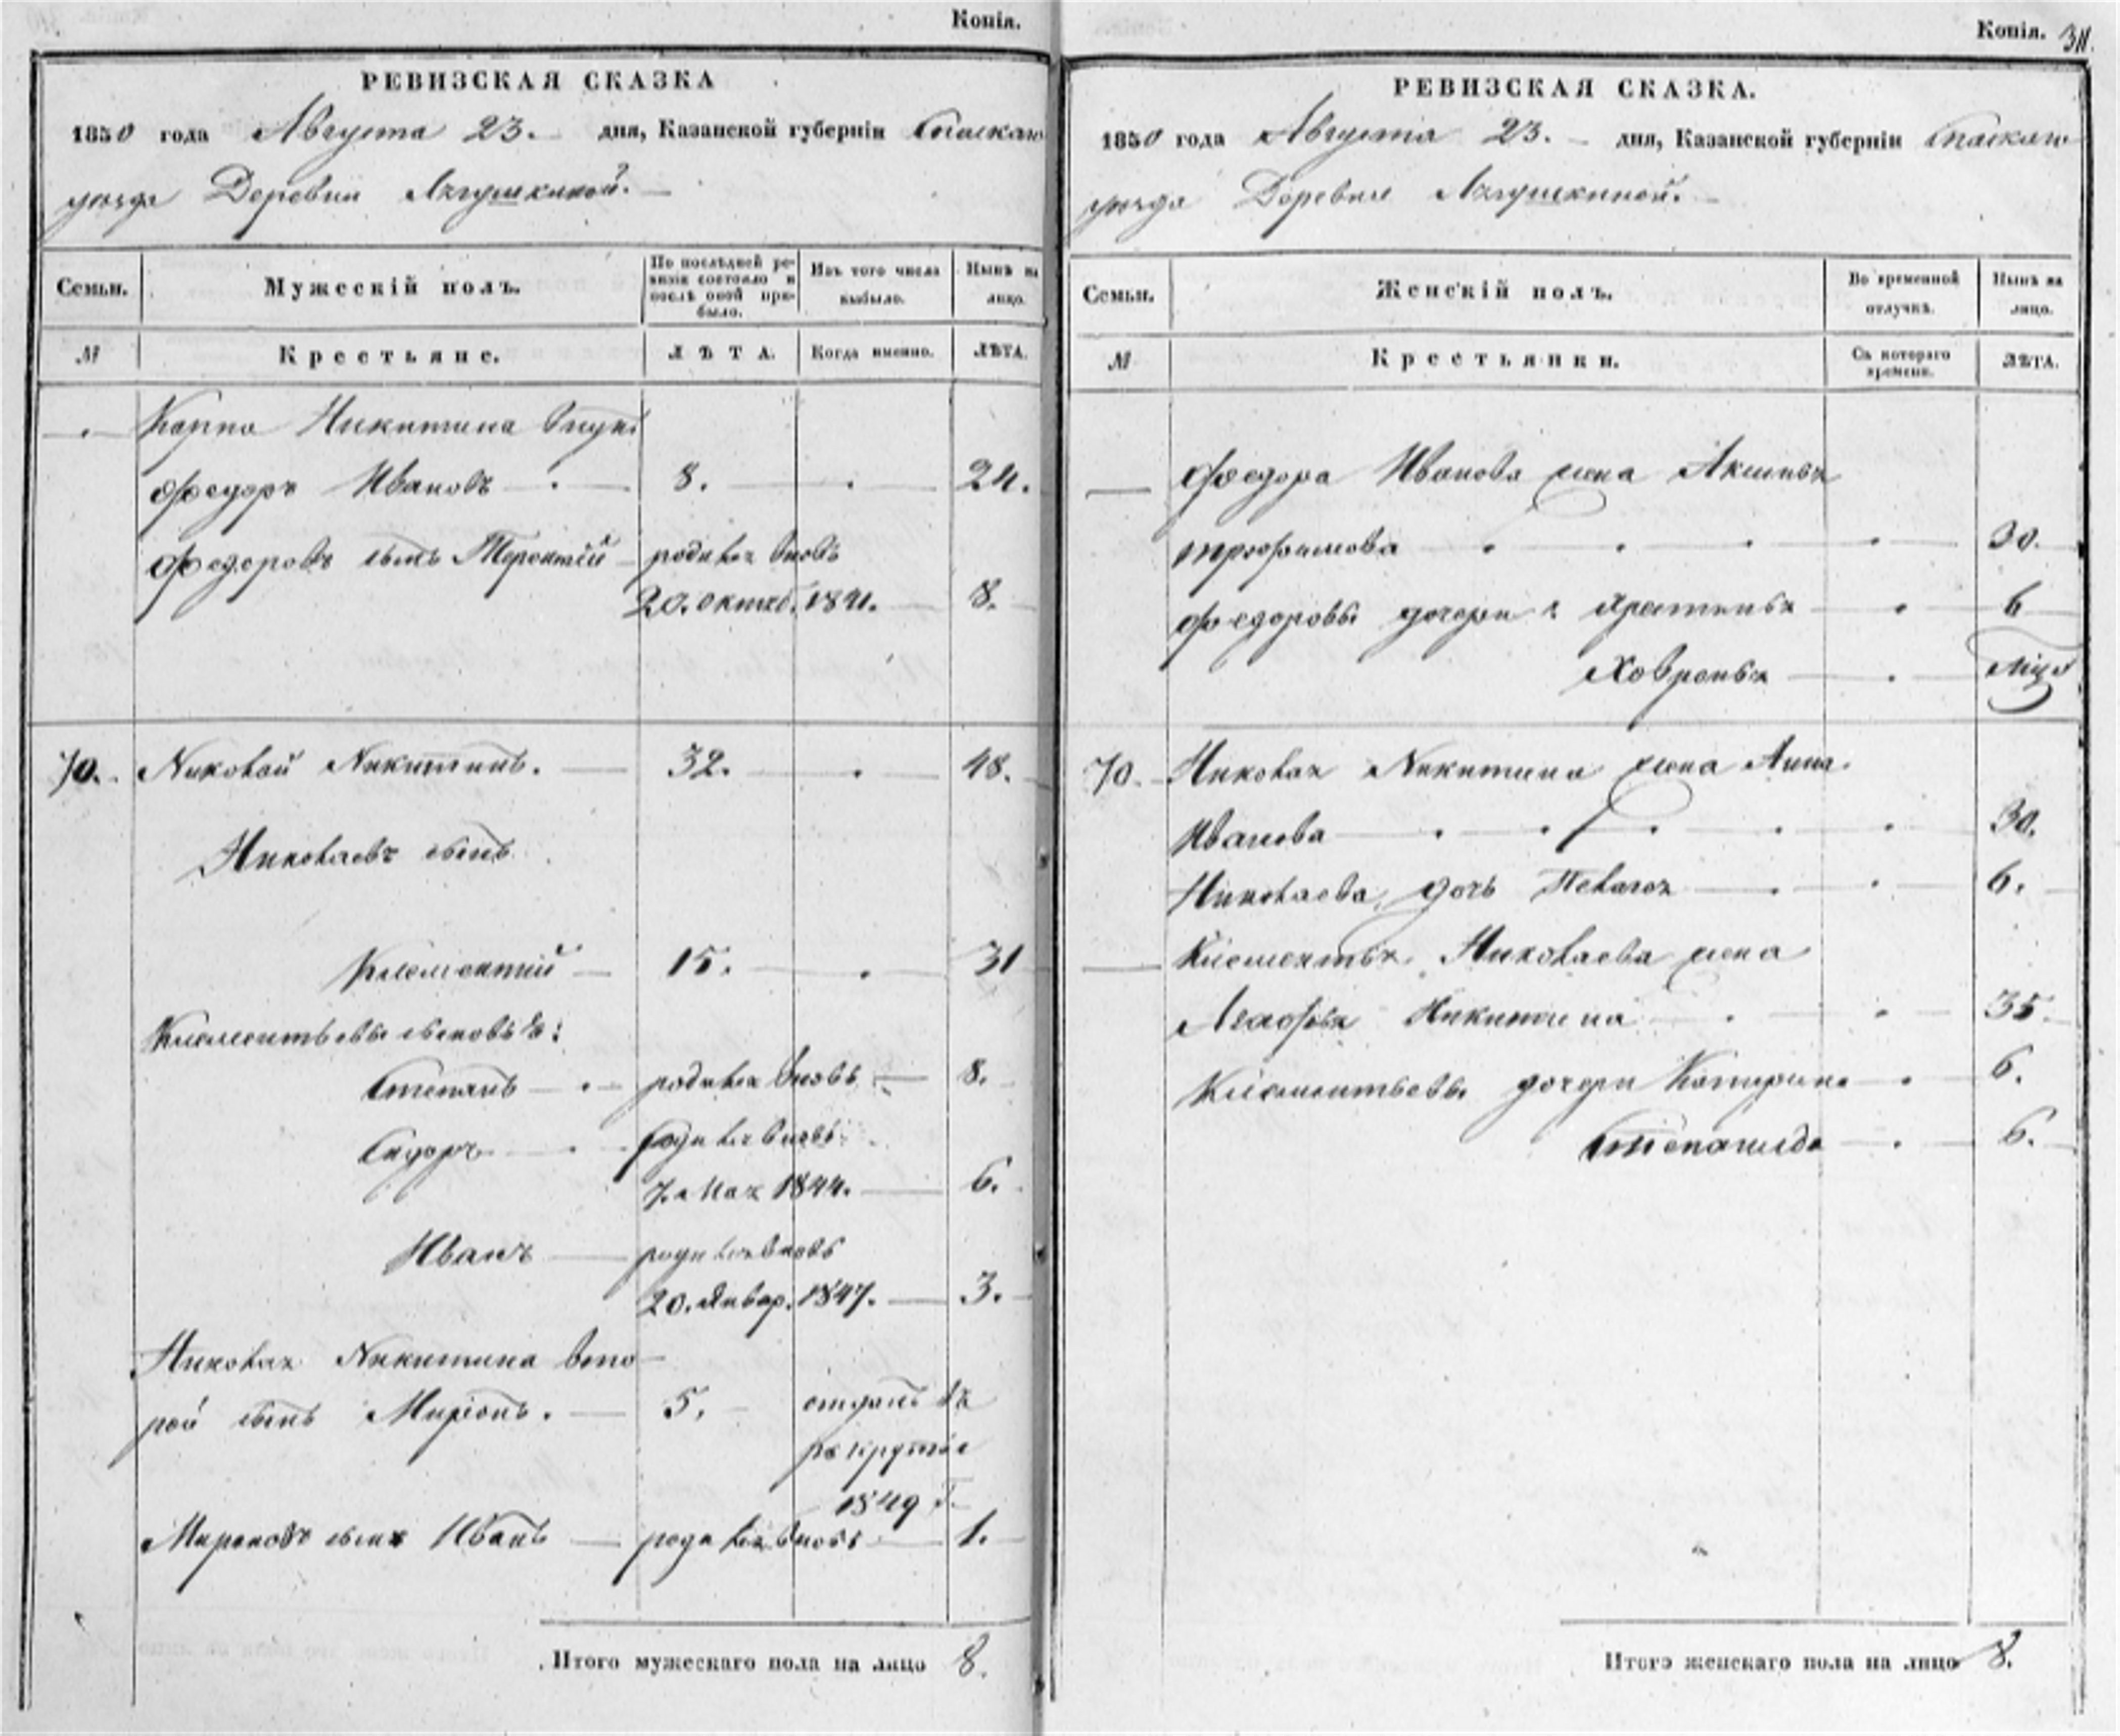 Копія.
РЕВИЗСКАЯ СКАЗКА
1850 года Августа 23. дня, Казанской губерніи Спаскаго
уѣзда Деревни Лягушкиной.
Семьи. Мужескій полъ. По послѣдней ревизіи состояло и послѣ оной прибыло. Изъ того числа выбыло. Нынѣ на лицо.
№ Крестьяне. ЛѢТА. Когда именно. ЛѢТА.
Карпа Никитина внукъ
Федоръ Ивановъ 8. 24.
Федоровъ сынъ Терентій родился вновь
20. октяб. 1841. 8.
70. Николай Никитинъ. 32. 48.
Николаевъ сынъ
Клементій 15. 31
Клементьевы сыновья:
Степанъ родился вновь 8.
Сидоръ родился вновь
7. мая 1844. 6.
Иванъ родился вновь
20. январ. 1847. 3.
Николая Никитина вто
рой сынъ Миронъ. 5. отданъ въ
рекруты
1849 г.
Мироновъ сынъ Иванъ родился вновь 1.
Итого мужескаго пола на лицо 8.
Копія.
РЕВИЗСКАЯ СКАЗКА.
1850 года Августа 23. дня, Казанской губерніи Спаскаго
уѣзда Деревни Лягушкиной.
Семьи. Женскій полъ. Во временной отлучкѣ. Нынѣ на лицо.
№ Крестьянки. Съ котораго времени. ЛѢТА.
Федора Иванова жена Акулина
Трофимова 30.
Федоровы дочери: 6
Ховронья
70. Николая Никитина жена Анна
Иванова 30.
Николаева дочь Пелагея 6.
Клементья Николаева жена
Агафья Никитина 35.
Клементьевы дочери Катерина 6.
Степанида 6.
Итого женскаго пола на лицо 8.